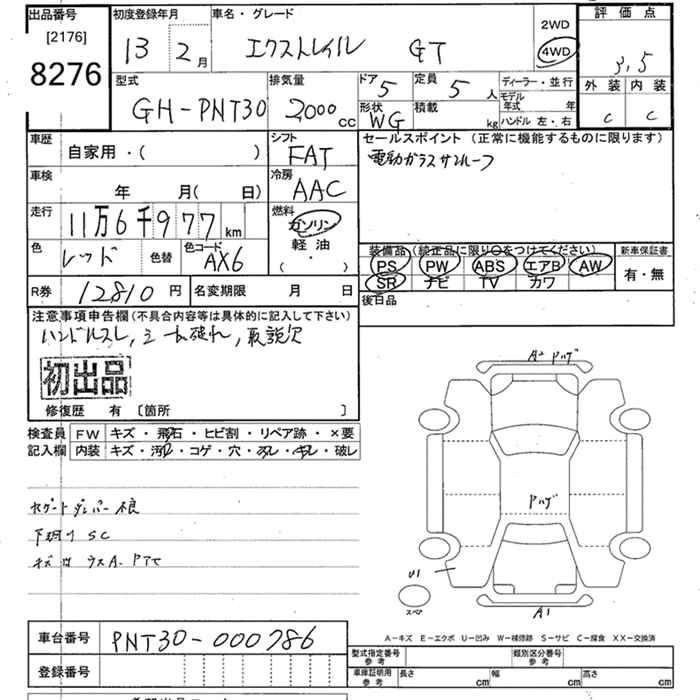 出品番号
[2176]
8276
初度登録年月
13 2月
車名・グレード
エクストレイル GT
2WD
4WD
評価点
3.5
外装 内装
C C
型式
GH-PNT30
排気量
2,000cc
ドア 5
形状 WG
定員 5人
積載 kg
ディーラー・並行
モデル年式 年
ハンドル 左・右
車歴
自家用・( )
シフト
FAT
セールスポイント (正常に機能するものに限ります)
電動ガラスサンルーフ
車検
年 月( 日)
冷房
AAC
走行
11万6千977km
燃料
ガソリン
軽油
( ・ )
色
レッド
色替
色コード
AX6
装備品 (純正品に限り○をつけてください)
PS PW ABS エアB AW
SR ナビ TV カワ
新車保証書
有・無
R券 12810円
名変期限 月 日
後日品
注意事項申告欄(不具合内容等は具体的に記入して下さい)
ハンドルスレ, シート破れ, 取説欠
初出品
修復歴 有 [箇所 ]
検査員記入欄
FW キズ・飛石・ヒビ割・リペア跡・×要
内装 キズ・汚れ・コゲ・穴・スレ・キレ・破レ
不良
下廻り SC
A2
Pハゲ
Pハゲ
U1
スペア
A1
A-キズ E-エクボ U-凹み W-補修跡 S-サビ C-腐食 XX-交換済
車台番号
PNT30-000786
登録番号
型式指定番号
参考
類別区分番号
参考
車庫証明用
参考
長さ cm 幅 cm 高さ cm